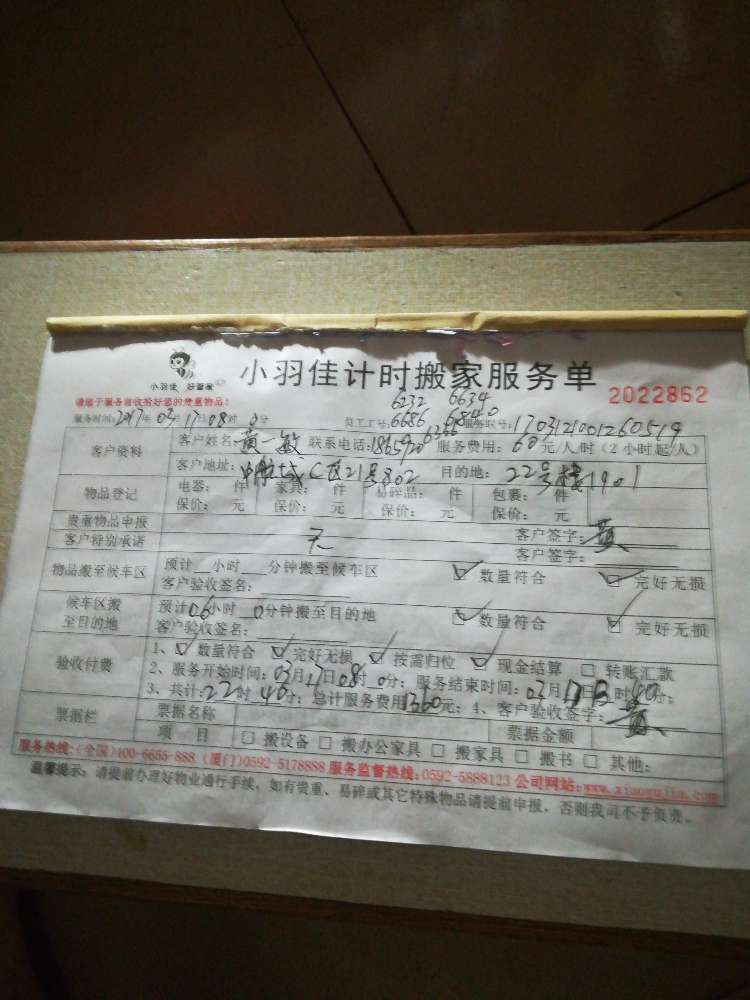 小羽佳 好管家
小羽佳计时搬家服务单
2022862
请您于服务前收验好您的贵重物品!
6232 6634
服务时间:2017年03月17日08时0分 员工工号:6686 6840 服务联号:1703121001260519
6366
客户资料
客户姓名:黄一敏 联系电话:1865920 服务费用:60元/人/时(2小时起/人)
客户地址:中航城C区21号802 目的地:22号楼1901
物品登记
电器: 件 家具: 件 易碎品: 件 包裹: 件
保价: 元 保价: 元 保价: 元 保价: 元
贵重物品申报 客户签字:黄
客户特别承诺 无 客户签字:
物品搬至候车区
预计 小时 分钟搬至候车区 数量符合 完好无损
客户验收签名:
候车区搬
至目的地
预计06小时0分钟搬至目的地 数量符合 完好无损
客户验收签名:
验收付费
1、数量符合 完好无损 按需归位 现金结算 转账汇款
2、服务开始时间:03月17日08时0分;服务结束时间:03月17日 时40分;
3、共计:22时40分;总计服务费用1360元;4、客户验收签字:黄
票据栏
票据名称 票据金额
项 目 搬设备 搬办公家具 搬家具 搬书 其他:
服务热线:(全国)400-6655-888 (厦门)0592-5178888 服务监督热线:0592-5888123 公司网站:www.xiaoyujia.com
温馨提示:请提前办理好物业通行手续,如有贵重、易碎或其它特殊物品请提前申报,否则我司不予负责。